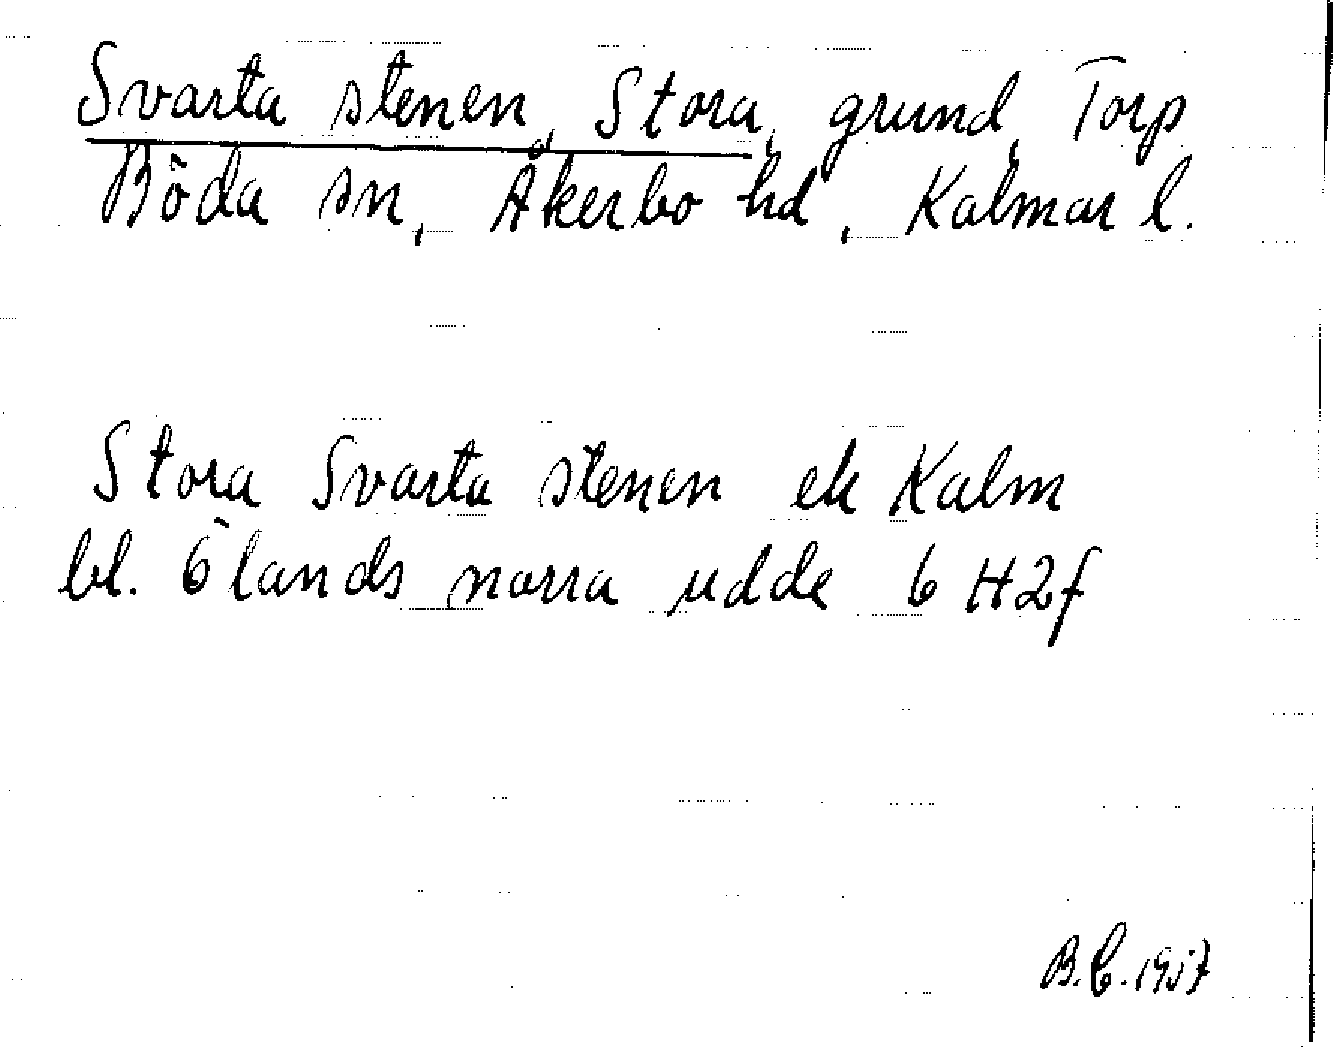 Svarta stenen, Stora, grund, Torp
Böda sn, Åkerbo hd, Kalmar l.
Stora Svarta stenen ek Kalm
bl. Ölands norra udde 6 H2f
B.C. 1957